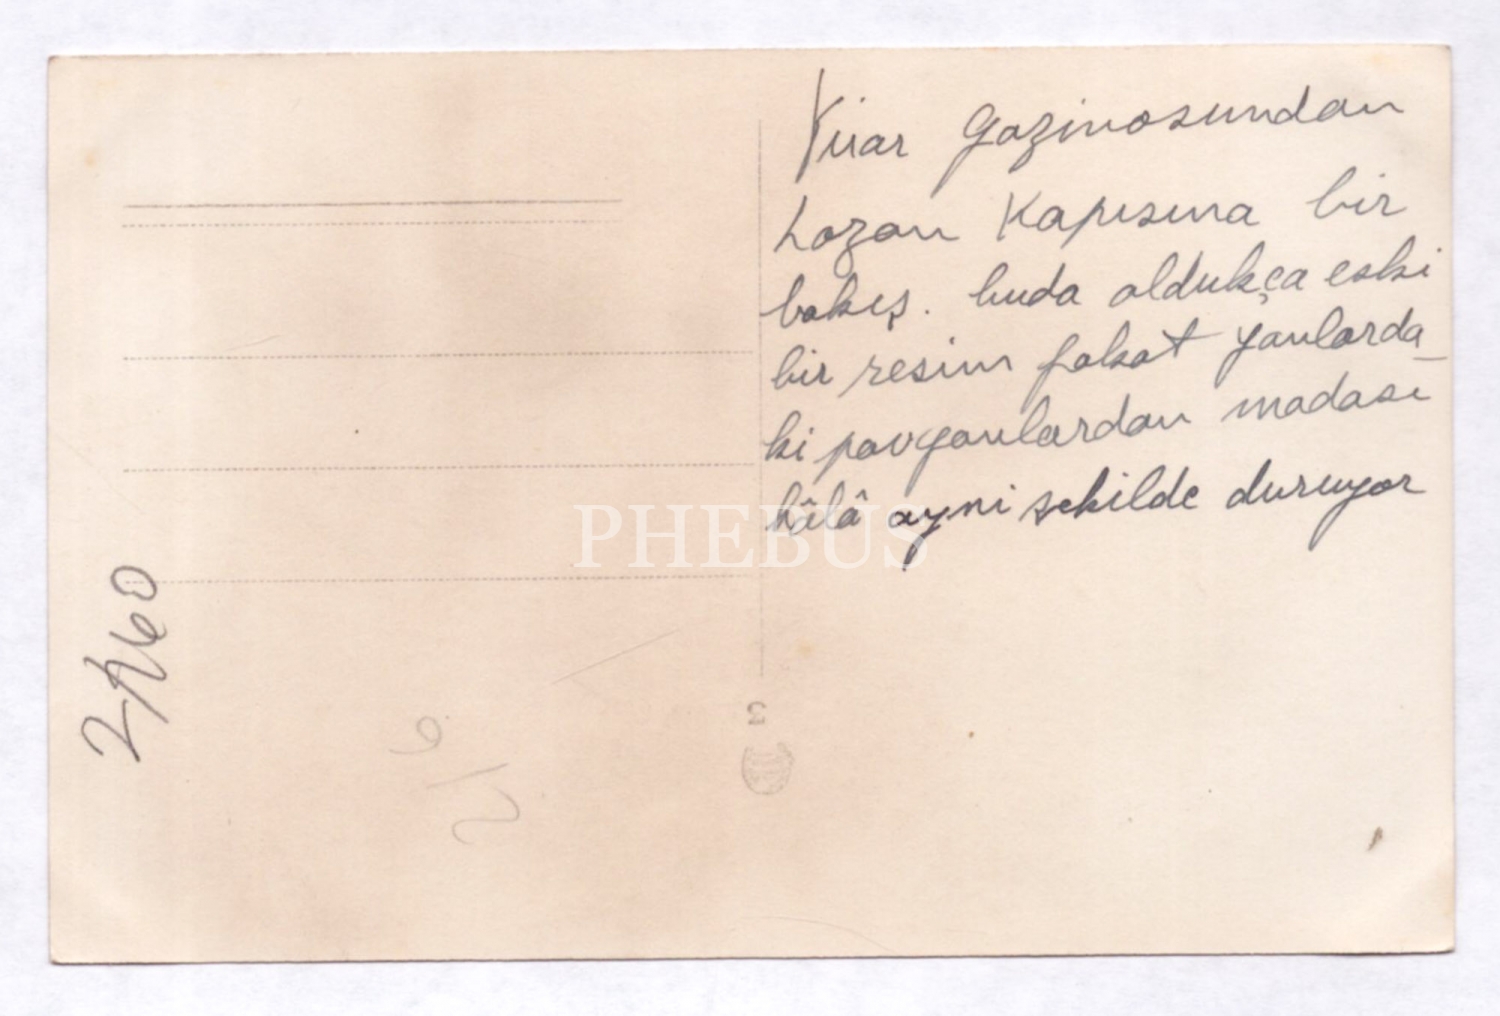 Virar gazinosundan
Lozan Kapısına bir
bakış. buda oldukça eski
bir resim fakat yanlarda_
ki pavyonlardan madası
hâlâ ayni şekilde duruyor
PHEBUS